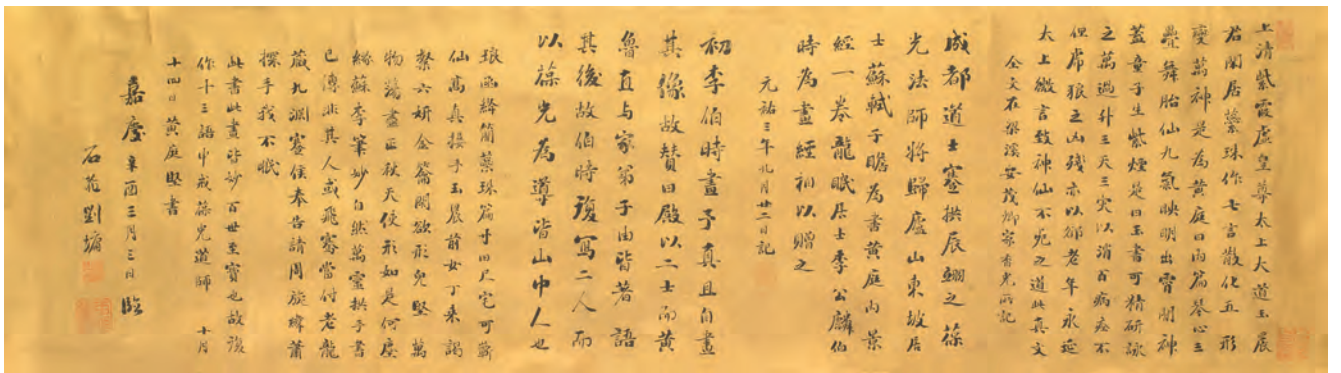 上清紫霞虛皇尊太上大道玉晨
君閒居蘂珠作七言散化五形
變萬神是為黃庭曰內篇琴心三
疊舞胎仙九氣映明出霄間神
蓋童子生紫煙是曰玉書可精研詠
之萬過升三天三灾以消百病痊不
但虎狼之凶殘亦以卻老年永延
太上微言致神仙不死之道此真文
全文在梁溪安茂卿家香光所記
成都道士蹇拱辰翊之葆
光法師將歸廬山東坡居
士蘇軾子瞻為書黃庭內景
經一卷龍眠居士李公麟伯
時為畫經相以贈之
元祐三年九月廿二日記
初李伯時畫予真且自畫
其像故贊曰殿以二士而黃
魯直与家弟子由皆著語
其後故伯時復寫二人而
以葆光為導皆山中人也
琅函絳簡蘂珠篇寸田尺宅可蘄
仙高真接手玉晨前女丁来謁
粲六妍金籥閟欲形完堅萬
物蕩盡正秋天使形如是何塵
緣蘇李筆妙自然萬靈拱手書
已傳非其人或飛騫當付老龍
藏九淵蹇侯奉告請周旋緯蕭
探手我不眠
此書此畫皆妙百世至寶也故復
作十三語申戒葆光道師 十月
十四日黃庭堅書
嘉慶辛酉三月三日臨
石菴劉墉